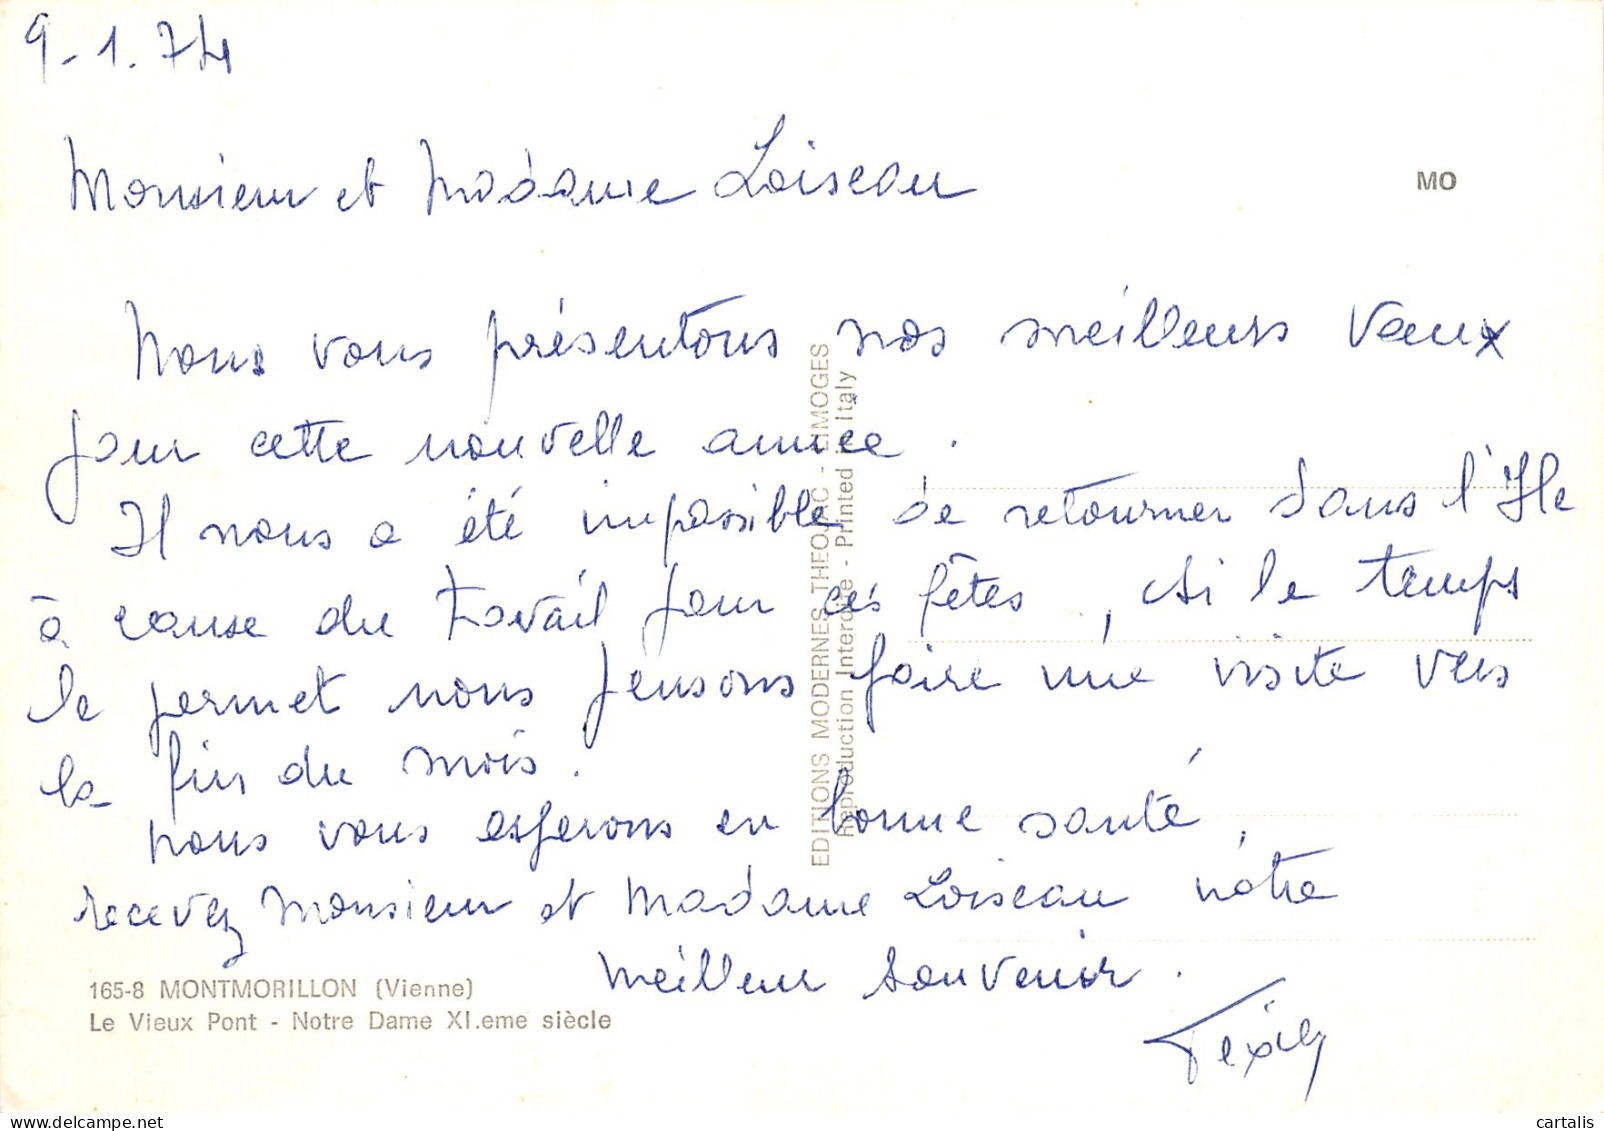 9-1.74
Monsieur et Madame Loiseau
MO
Nous vous présentons nos meilleurs vœux
pour cette nouvelle année.
Il nous a été impossible de retourner dans l'Ile
à cause du travail pour ces fêtes, si le temps
le permet nous pensons faire une visite vers
la fin du mois.
nous vous esperons en bonne santé,
recevez Monsieur et Madame Loiseau nôtre
meilleur souvenir.
EDITIONS MODERNES THEOJAC - LIMOGES
Reproduction Interdite - Printed in Italy
165-8 MONTMORILLON (Vienne)
Le Vieux Pont - Notre Dame XI.eme siècle
cartalis